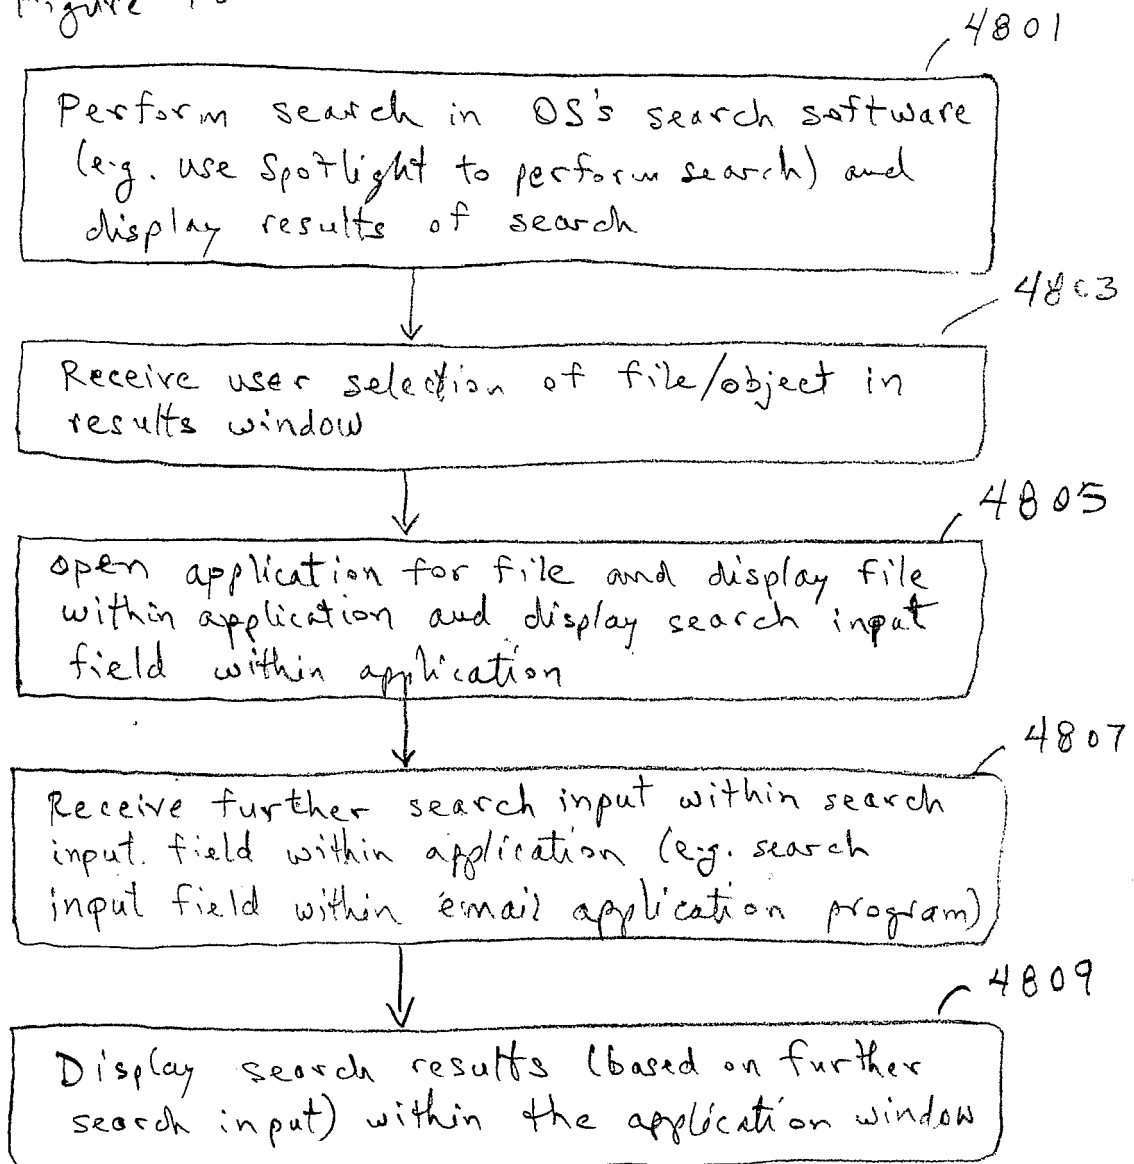 Figure
4801
Perform search in OS's search software
(e.g. use Spotlight to perform search) and
display results of search
4803
Receive user selection of file/object in
results window
4805
open application for file and display file
within application and display search input
field within application
4807
Receive further search input within search
input field within application (e.g. search
input field within email application program)
4809
Display search results (based on further
search input) within the application window